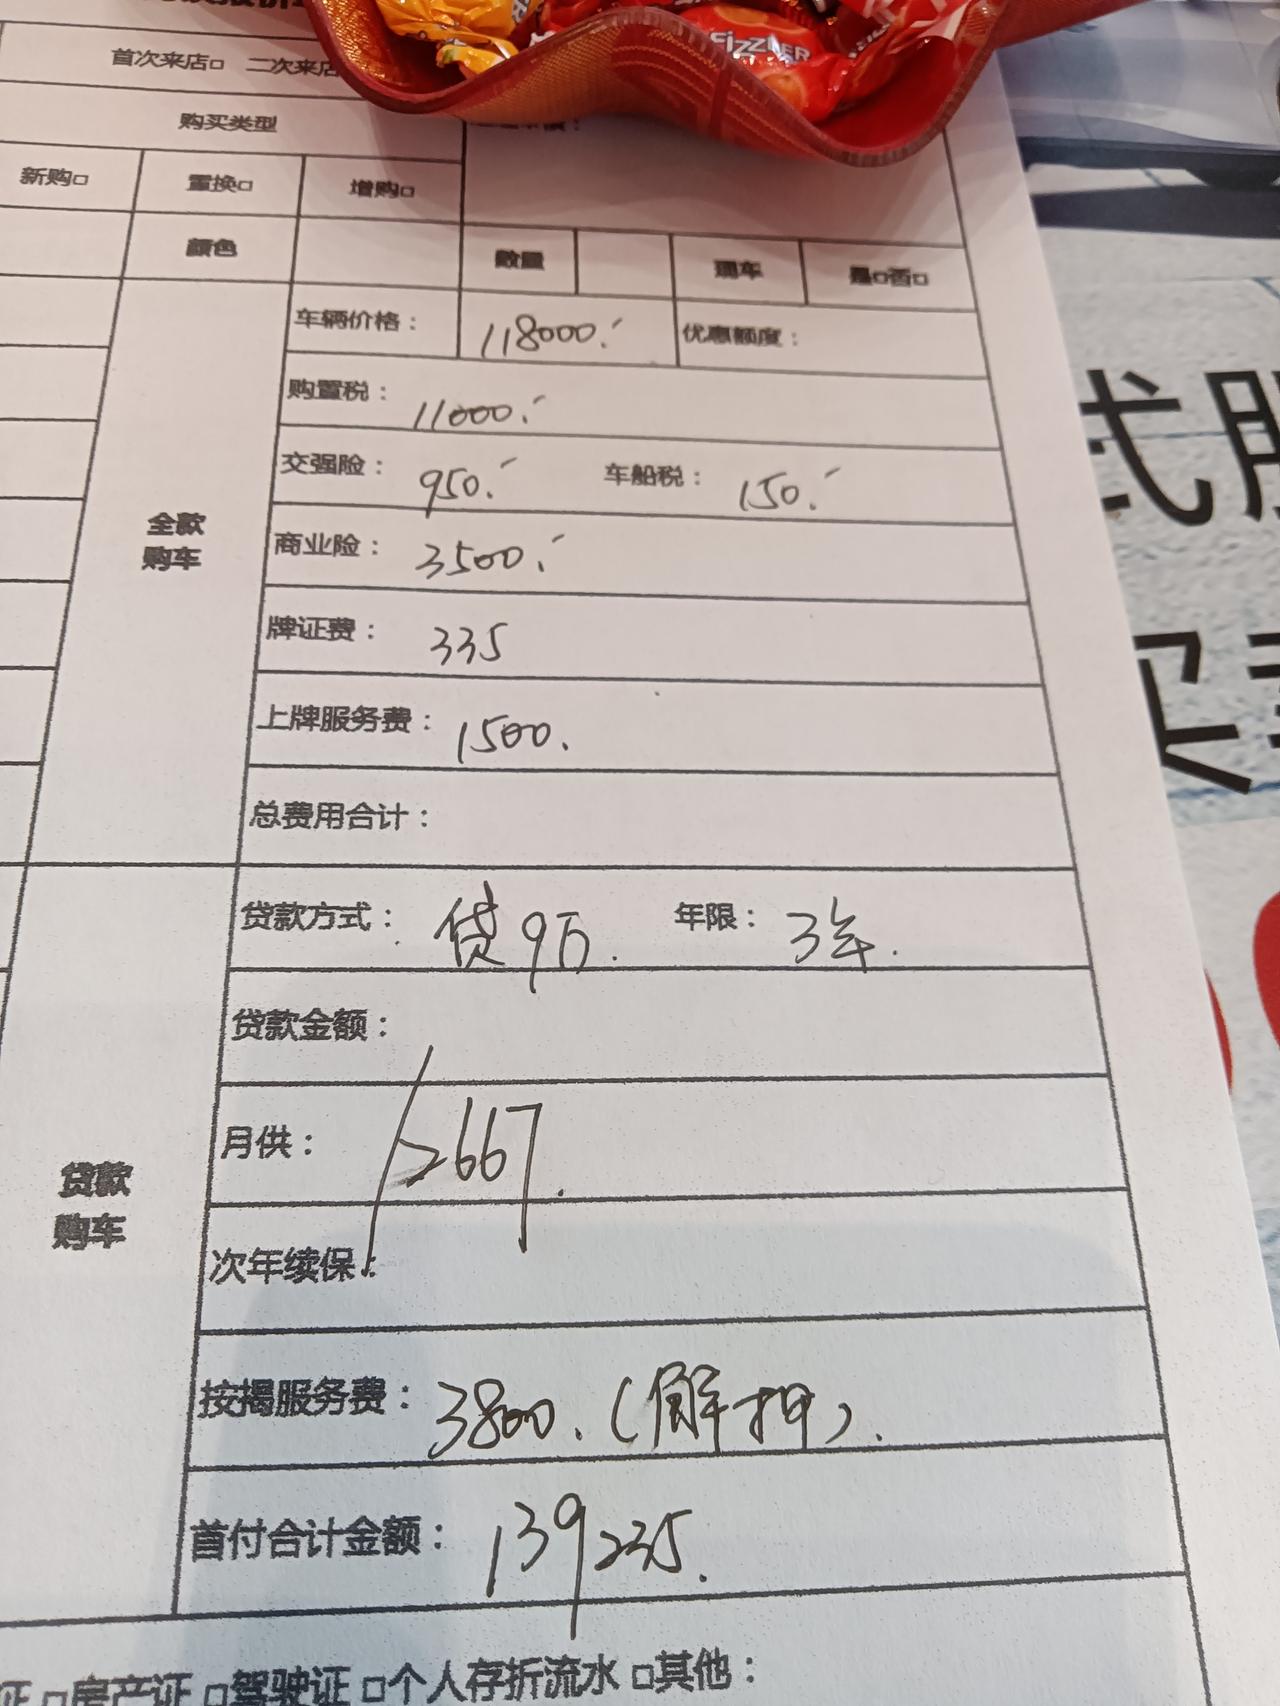 首次来店□ 二次来店
购买类型
新购□ 置换□ 增购□
颜色 数量 现车 是□否□
车辆价格： 118000. 优惠额度：
购置税： 11000.
交强险： 950. 车船税： 150.
全款
购车
商业险： 3500.
牌证费： 335
上牌服务费： 1500.
总费用合计：
贷款方式： 贷9万. 年限： 3年.
贷款金额：
月供： 2667.
贷款
购车
次年续保：
按揭服务费： 3800.（解押）.
首付合计金额： 139235.
证 □房产证 □驾驶证 □个人存折流水 □其他：
FIZZLER
式服
买